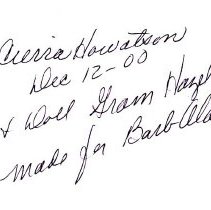 Cierra Howatson
Dec 12-00
& Doll Gram Hazel
made for Barb